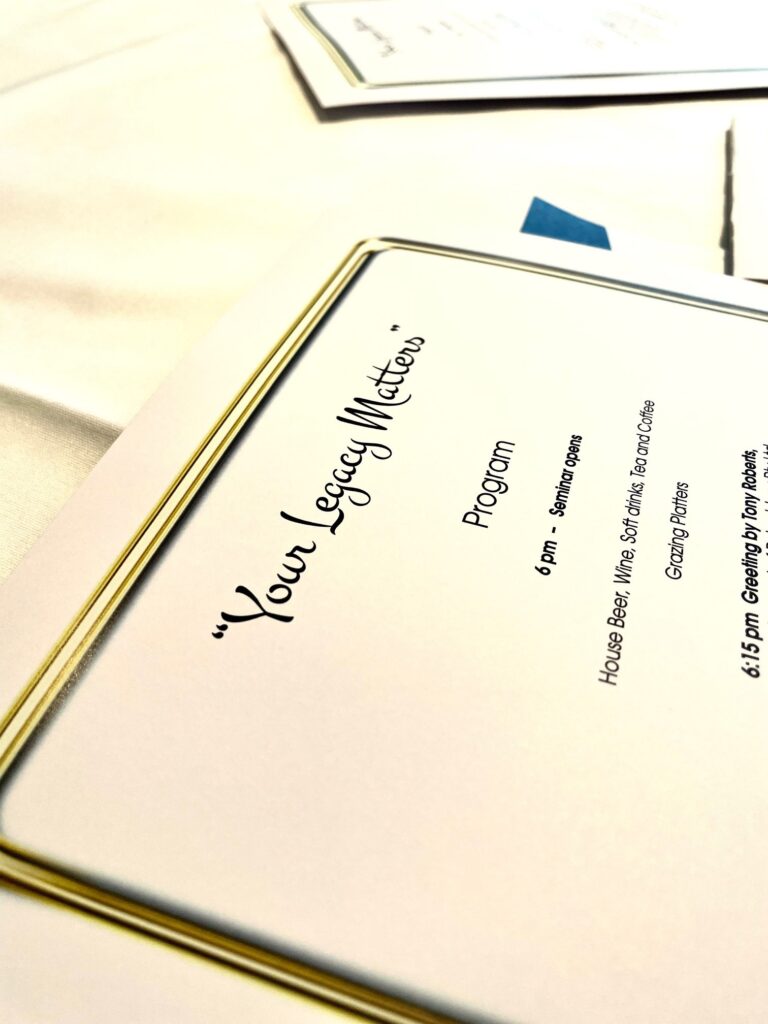 “Your Legacy Matters”
Program
6 pm - Seminar opens
House Beer, Wine, Soft drinks, Tea and Coffee
Grazing Platters
6:15 pm Greeting by Tony Roberts,